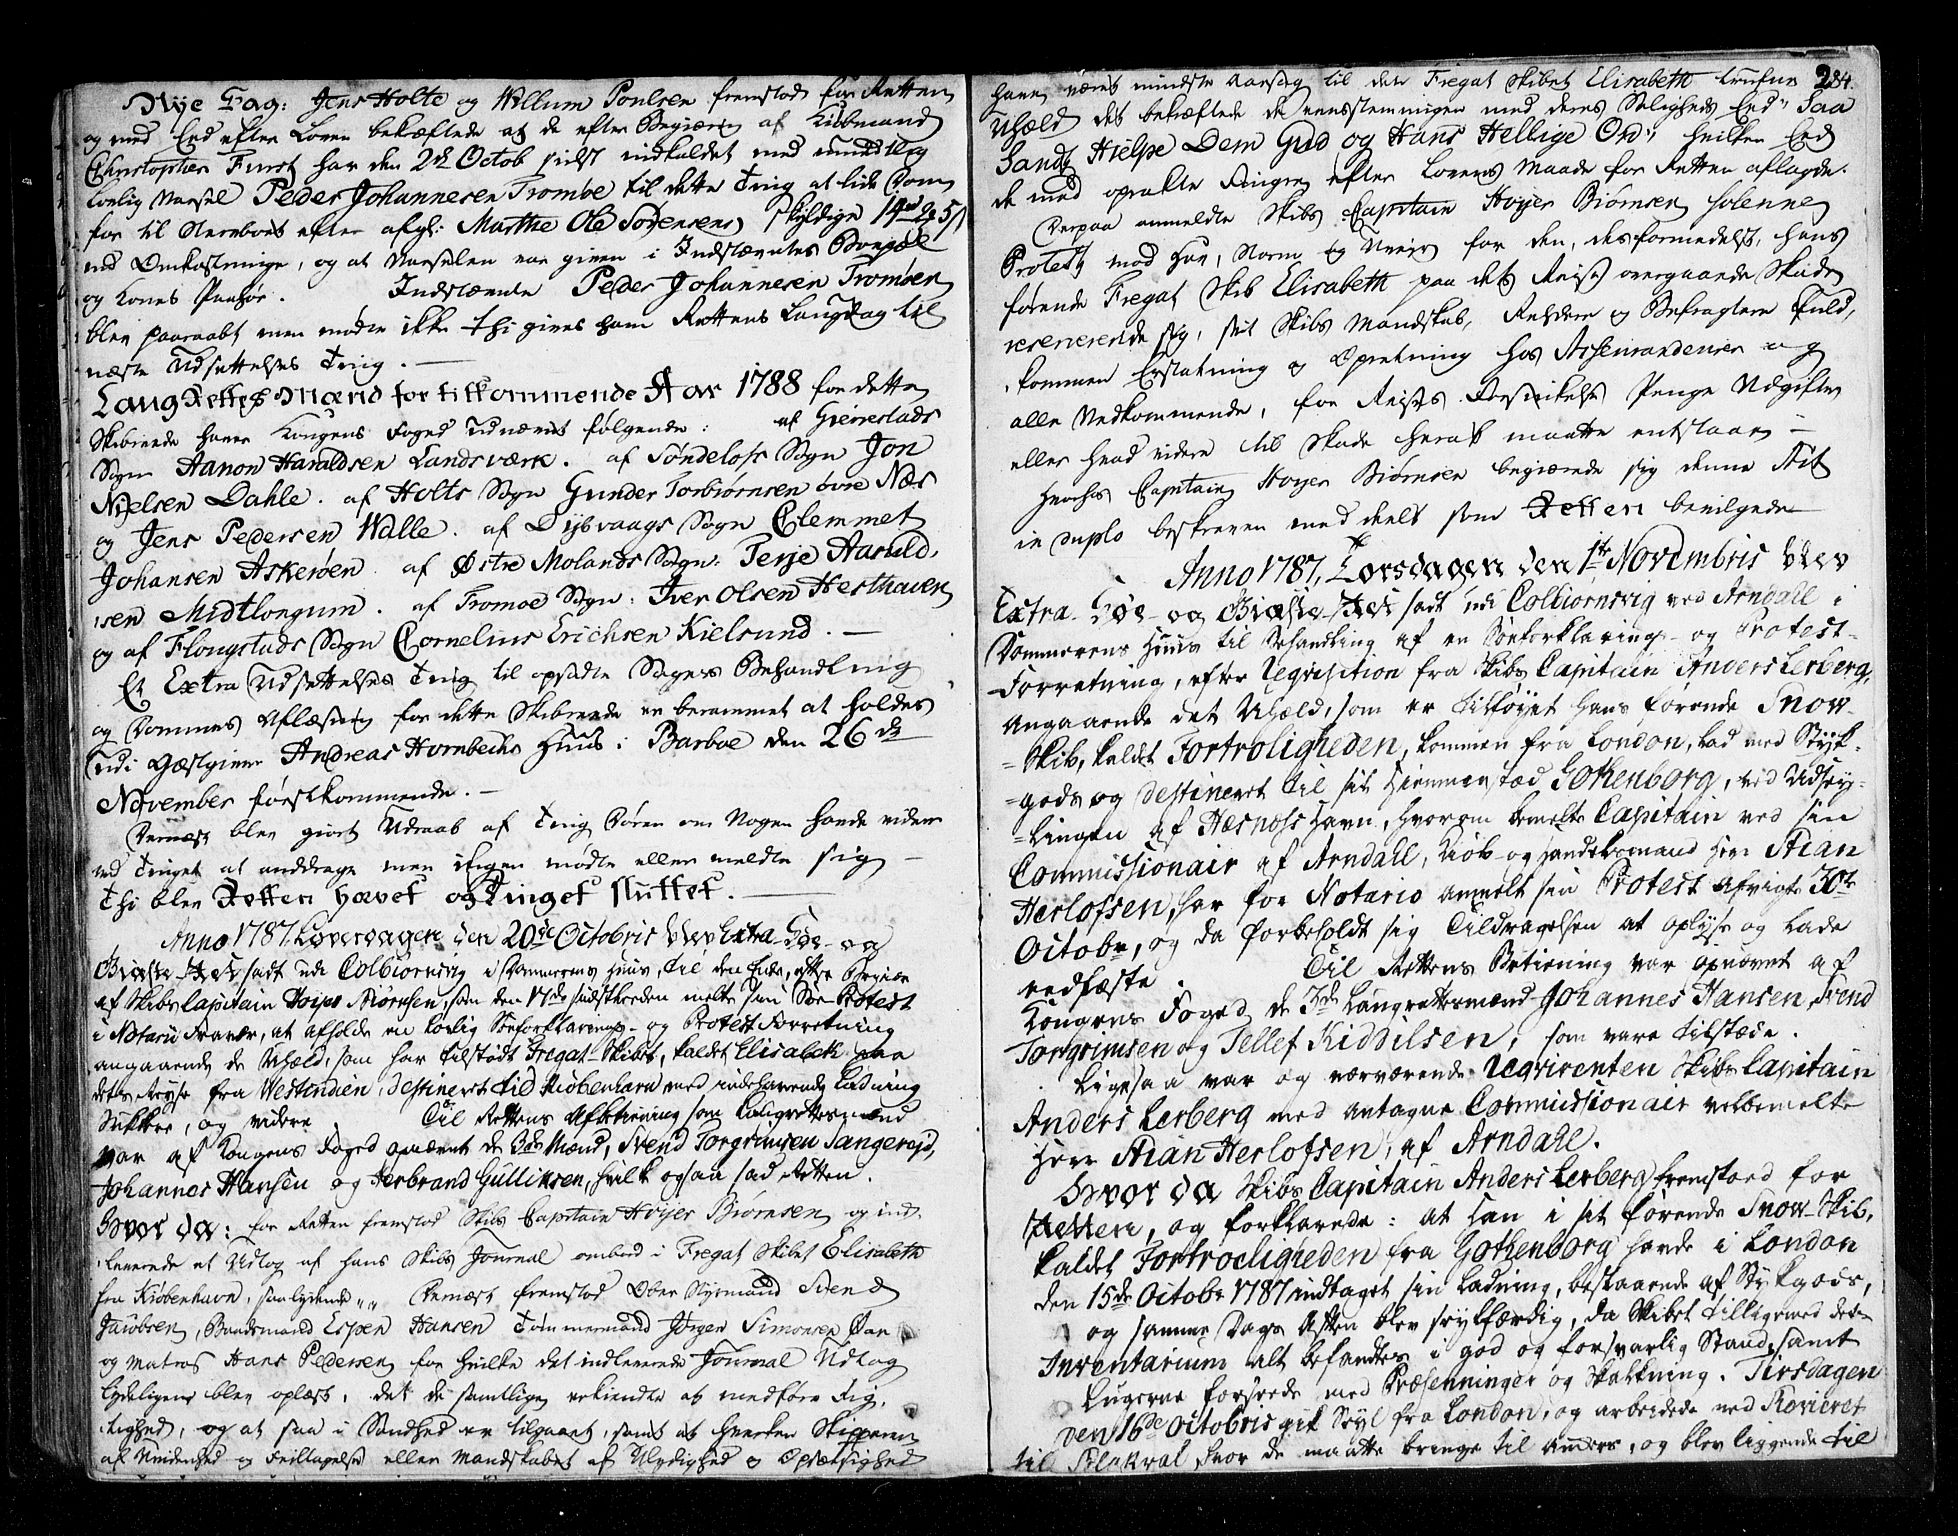 Nye Sag: Jens Holte og Willum Poulsen fremstod for Retten
og med Eed efter Loven bekræftede at de efter Begiæring af Kiøbmand
Christopher Furst har den 2de Octob sidst indkaldet med mundtlig
lovlig Varsel Peder Johannesen Trombe til dette Ting at lide Dom
for til Sterboet efter afg: Marthe Ole Sørensens skyldige 14
med Omkostninge, og at Varselen var given i Indstævntes Boepæl
og Kones Paahør. Indstævnte Peder Johannesen Tromøen
blev paaraabt men mødte ikke thi gives ham Rettens Laugdag til
næste Udsettelses Ting.
Laug Rettes Mænd for tilkommende Aar 1788 for dette
Skibrede haver Kongens Foged udnævnt følgende: af Gierrestads
Sogn Aanon Haraldsen Landsværk. af Søndeløfs Sogn Jon
Nielsen Dahle. af Holts Sogn Gunder Torbiørnsen øvre Næs
og Jens Pedersen Walle. af Dybvaags Sogn Clemmet
Johansen Askerøen af Østre Molands Sogn: Terje Aasuld,
sen Midtlongum. af Tromøe Sogn: Iver Olsen Hesthauen
og af Flougstads Sogn Cornelius Erichsen Kielsund.
Et Extra Udsettelses Ting til opsadte Sagers Behandling
og Dommes Aflæsning for dette Skibrede er berammet at holdes
udi Giæstgiver Andreas Hornbechs Huus i Barboe den 26de
November førstkommende.
Dernæst blev giort Udraab af Ting Døren om Nogen havde videre
ved Tinget at anddrage men ingen mødte eller meldte sig
Thi blev Retten hævet og Tinget sluttet.
Anno 1787. Løverdagen den 20de Octobris blev Extra Søe og
Giæste Ret sadt udi Colbiornsvig i Dommerens Huus, til den Ende, efter Begiær
af Skibs Capitain Hoyer Biørnsen, som den 17de sidstleeden melte sin Søe-Protest
i Notarii Fravær, at afholde en lovlig Søeforklarings- og Protest Forretning
angaaende de Uheld, som har tilstødt Fregat-Skibet, kaldet Elisabeth paa
dets Reyse fra Westindien, destineret til Kiøbenhavn med indehavende Ladning
Sukker, og videre Til Rettens Afbetiening som Laugrettesmænd
var af Kongens Foged opnævnt de 3de Mænd, Svend Torgrimsen Sangereid,
Johannes Hansen og Herbrand Gullinsen, hvilke ogsaa sad Retten.
Hvor da: for Retten fremstod Skibs Capitain Høyer Biørnsen og ind-
leverede et Udtog af hans Skibs Journal ombord i Fregat Skibet Elisabeth
fra Kiøbenhavn, saalydende „ „ Dernæst fremstod Ober Styrmand Svend
Jacobsen, Baadsmand Espen Hansen Tømmermand Jørgen Simonsen Dan
og Matros Hans Pedersen, for hvilke det indleverede Journal Udtog
lydeligen blev oplæst, det de samtlige erkiendte at medføre Rig,
tighed, og at saa i Sandhed er tilgaaet, samt at hverken Skipperen
af Uvidenhed og Feiltagelse eller Mandskabet af Ulydighed og Opsætsighed
284.
have været mindste Aarsag til den Fregat Skibet Elisabeth
Uheld det bekræftede de eensstemmigen med deres Saligheds Eed" Saa
Sandt Hielpe Dem Gud og Hans Hellige Ord" hvilken Eed
de med oprakte Fingre efter Lovens Maade for Retten aflagde.
Derpaa anmeldte Skibs Capitain Høyer Biørnsen solenne
Protest mod Hav, Storm og Veir for den, desformedelst, hans
førende Fregat Skib Elisabeth paa dets Reise overgaaende Skade
reserverende sig, sit Skibs Mandskab, Rehdere og Befragtere fuld,
kommen Erstatning og Opretning hos Asseurandeurer og
alle Vedkommende, for Reises Forsinkelse Penge Udgifter
eller hvad videre til Skade heraf maatte entstaae
Hvorhos Capitain Høyer Biørnsen begiærede sig denne Act
in duplo beskreven meddeelt som Retten bevilgede
Anno 1787, Torsdagen den 1te Novembris blev
Extra Søe- og Giæste-Ret sadt udi Colbiornsvig ved Arndahl i
Dommerens Huus til Behandling af en Søeforklarings- og Protest-
Forretning, efter Reqvisition fra Skibs Capitain Anders Lerberg,
Angaaende det Uheld, som er tilføyet hans førende Snow-
Skib, kaldet Fortroligheden, kommen fra London, lad med Styk-
gods og destineret til sit Hiemmestæd Gothenborg, ved Udsey-
lingen af Hæsnæss Havn, hvorom bemelte Capitain ved sin
Commissionair af Arndahl, Kiøb- og Handelsmand Herr Arian
Herlofsen, har for Notario anmelt sin Protest afvigte 30te
Octobr, og da forbeholdt sig Tildragelsen at oplyse og lade
vedfæste. Til Rettens Betiening var opnævnt af
Kongens Foged de 3de Laugrettesmænd Johannes Hansen, Svend
Torgrimsen og Tellef Kiddilsen, som vare tilstæde.
Ligesaa var og nærværende Reqvirenten Skibs Capitain
Anders Lerberg med antagne Commissionair velbemelte
Herr Arian Herlofsen, af Arndahl.
Hvor da Skibs Capitain Anders Lerberg fremstoed for
Retten, og forklarede: at Han i sit førende Snow-Skib,
kaldet Fortroeligheden fra Gothenborg havde i London
den 15de Octobr 1787 indtaget sin Ladning, bestaaende af Stykgods,
og samme Dags Aften blev seylfærdig, da Skibet tilligemed dets
Inventarium alt befandtes i god og forsvarlig Stand, samt
Lugerne forsvede med Præsenninger og Skalkning. Tirsdagen
den 16de Octobris gik Seyl fra London, og arbeidede ned Revieret
til Blakval, hvor de maatte bringe til Ankers, og blev liggende til